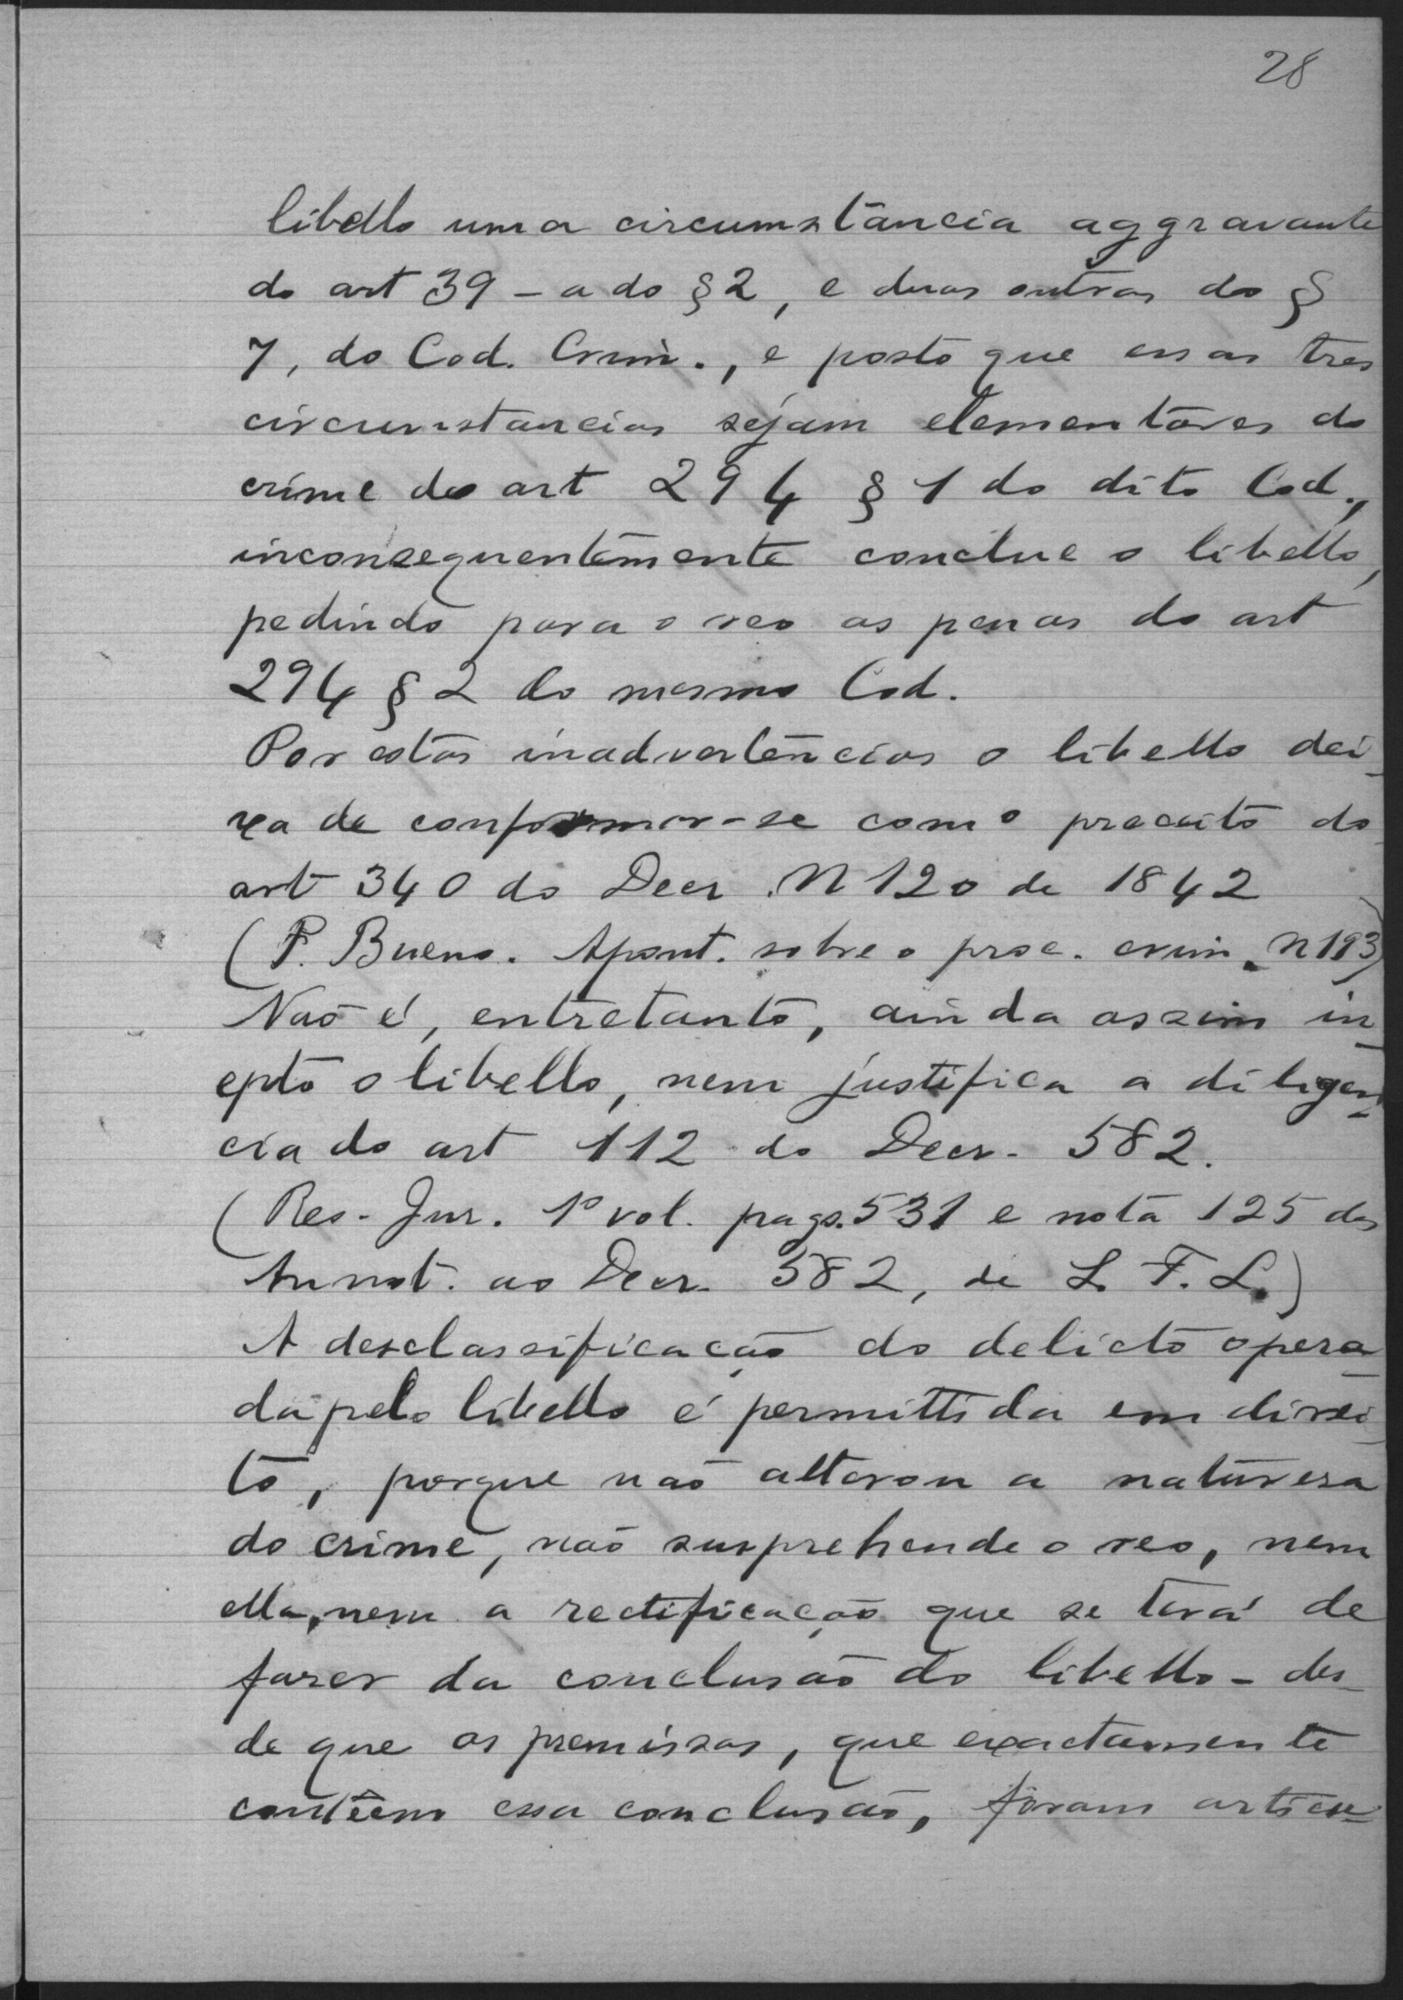 28
libello uma circumstância aggravante
do art 39 - a do § 2, e duas outras do §
7, do Cod. Crim., e posto que essas tres
circumstancias sejam elementares do
crime do art 294 § 1 do dito Cod.,
inconsequentemente conclue o libello,
pedindo para o reo as penas do art
294 § 2 do mesmo Cod.
Por estas inadvertências o libello dei-
xa de conformar-se com o preceito do
art 340 do Decr. N 120 de 1842
(P. Bueno. Apont. sobre o proc. crim. N 193)
Não é, entretanto, ainda assim in-
epto o libello, nem justifica a diligen-
cia do art 112 do Decr. 582.
(Res. Jur. 1º vol. pags. 531 e nota 125 das
Annot. ao Decr. 582, de L. F. L.)
A desclassificação do delicto opera-
da pelo libello é permittida em direi-
to, porque não alterou a naturesa
do crime, não surprehende o reo, nem
ella, nem a rectificação que se terá de
fazer da conclusão do libello - des-
de que as premissas, que exactamente
contêem essa conclusão, foram articu-